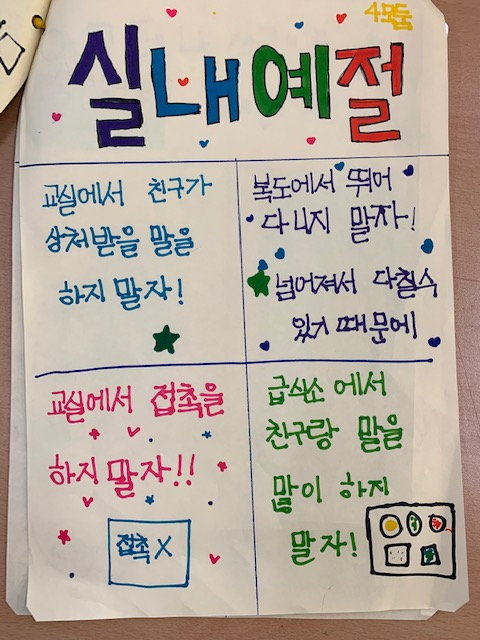 4모둠
실내예절
교실에서 친구가
상처받을 말을
하지 말자!
복도에서 뛰어
다니지 말자!
넘어져서 다칠수
있기 때문에
교실에서 접촉을
하지 말자!!
접촉 X
급식소에서
친구랑 말을
많이 하지
말자!